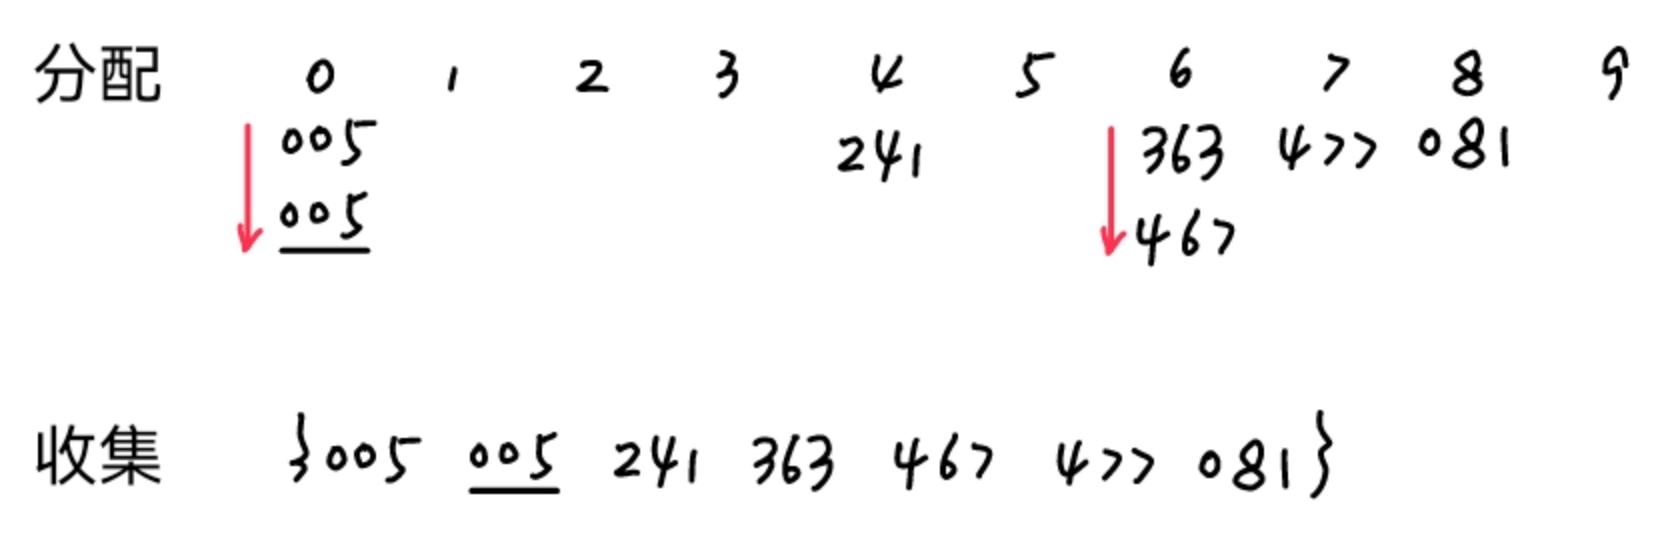 分配 0 1 2 3 4 5 6 7 8 9
005 241 363 477 081
005 467
收集 {005 005 241 363 467 477 081}